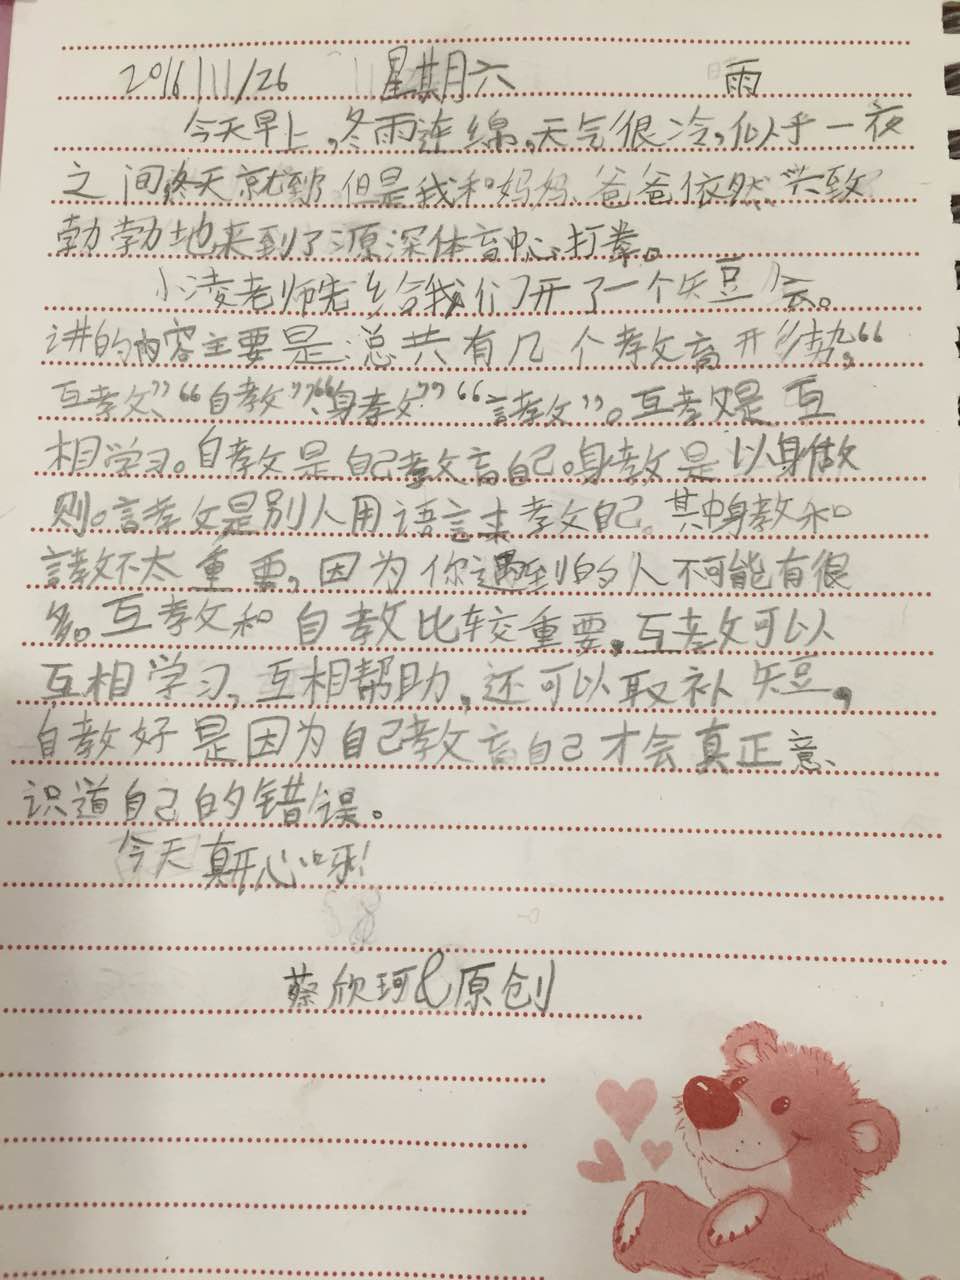 2016/11/26 星期六 雨
今天早上,冬雨连绵,天气很冷,似乎一夜
之间冬天就到了但是我和妈妈、爸爸依然兴致
勃勃地来到了源深体育中心打拳。
小凌老师先给我们开了一个短会。
讲的内容主要是:总共有几个教育形势,“
互教”、“自教”、“身教”“言教”。互教是互
相学习。自教是自己教育自己。身教是以身做
则。言教是别人用语言来教自己。其中身教和
言教不太重要,因为你遇到的人不可能有很
多。互教和自教比较重要,互教可以
互相学习,互相帮助,还可以取补短。
自教好是因为自己教育自己才会真正意
识道自己的错误。
今天真开心呀!
蔡欣珂&原创